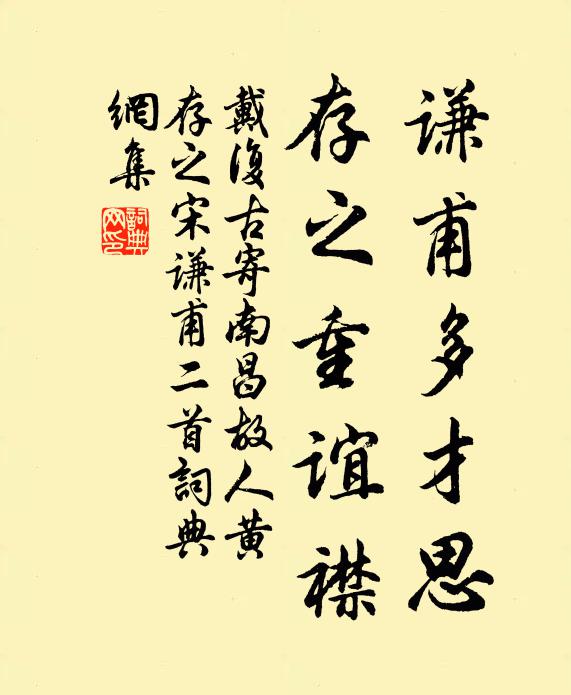 謙甫多才思
存之重誼襟
戴復古寄南昌故人黃
存之宋謙甫二首詞典
網集
詞典網印